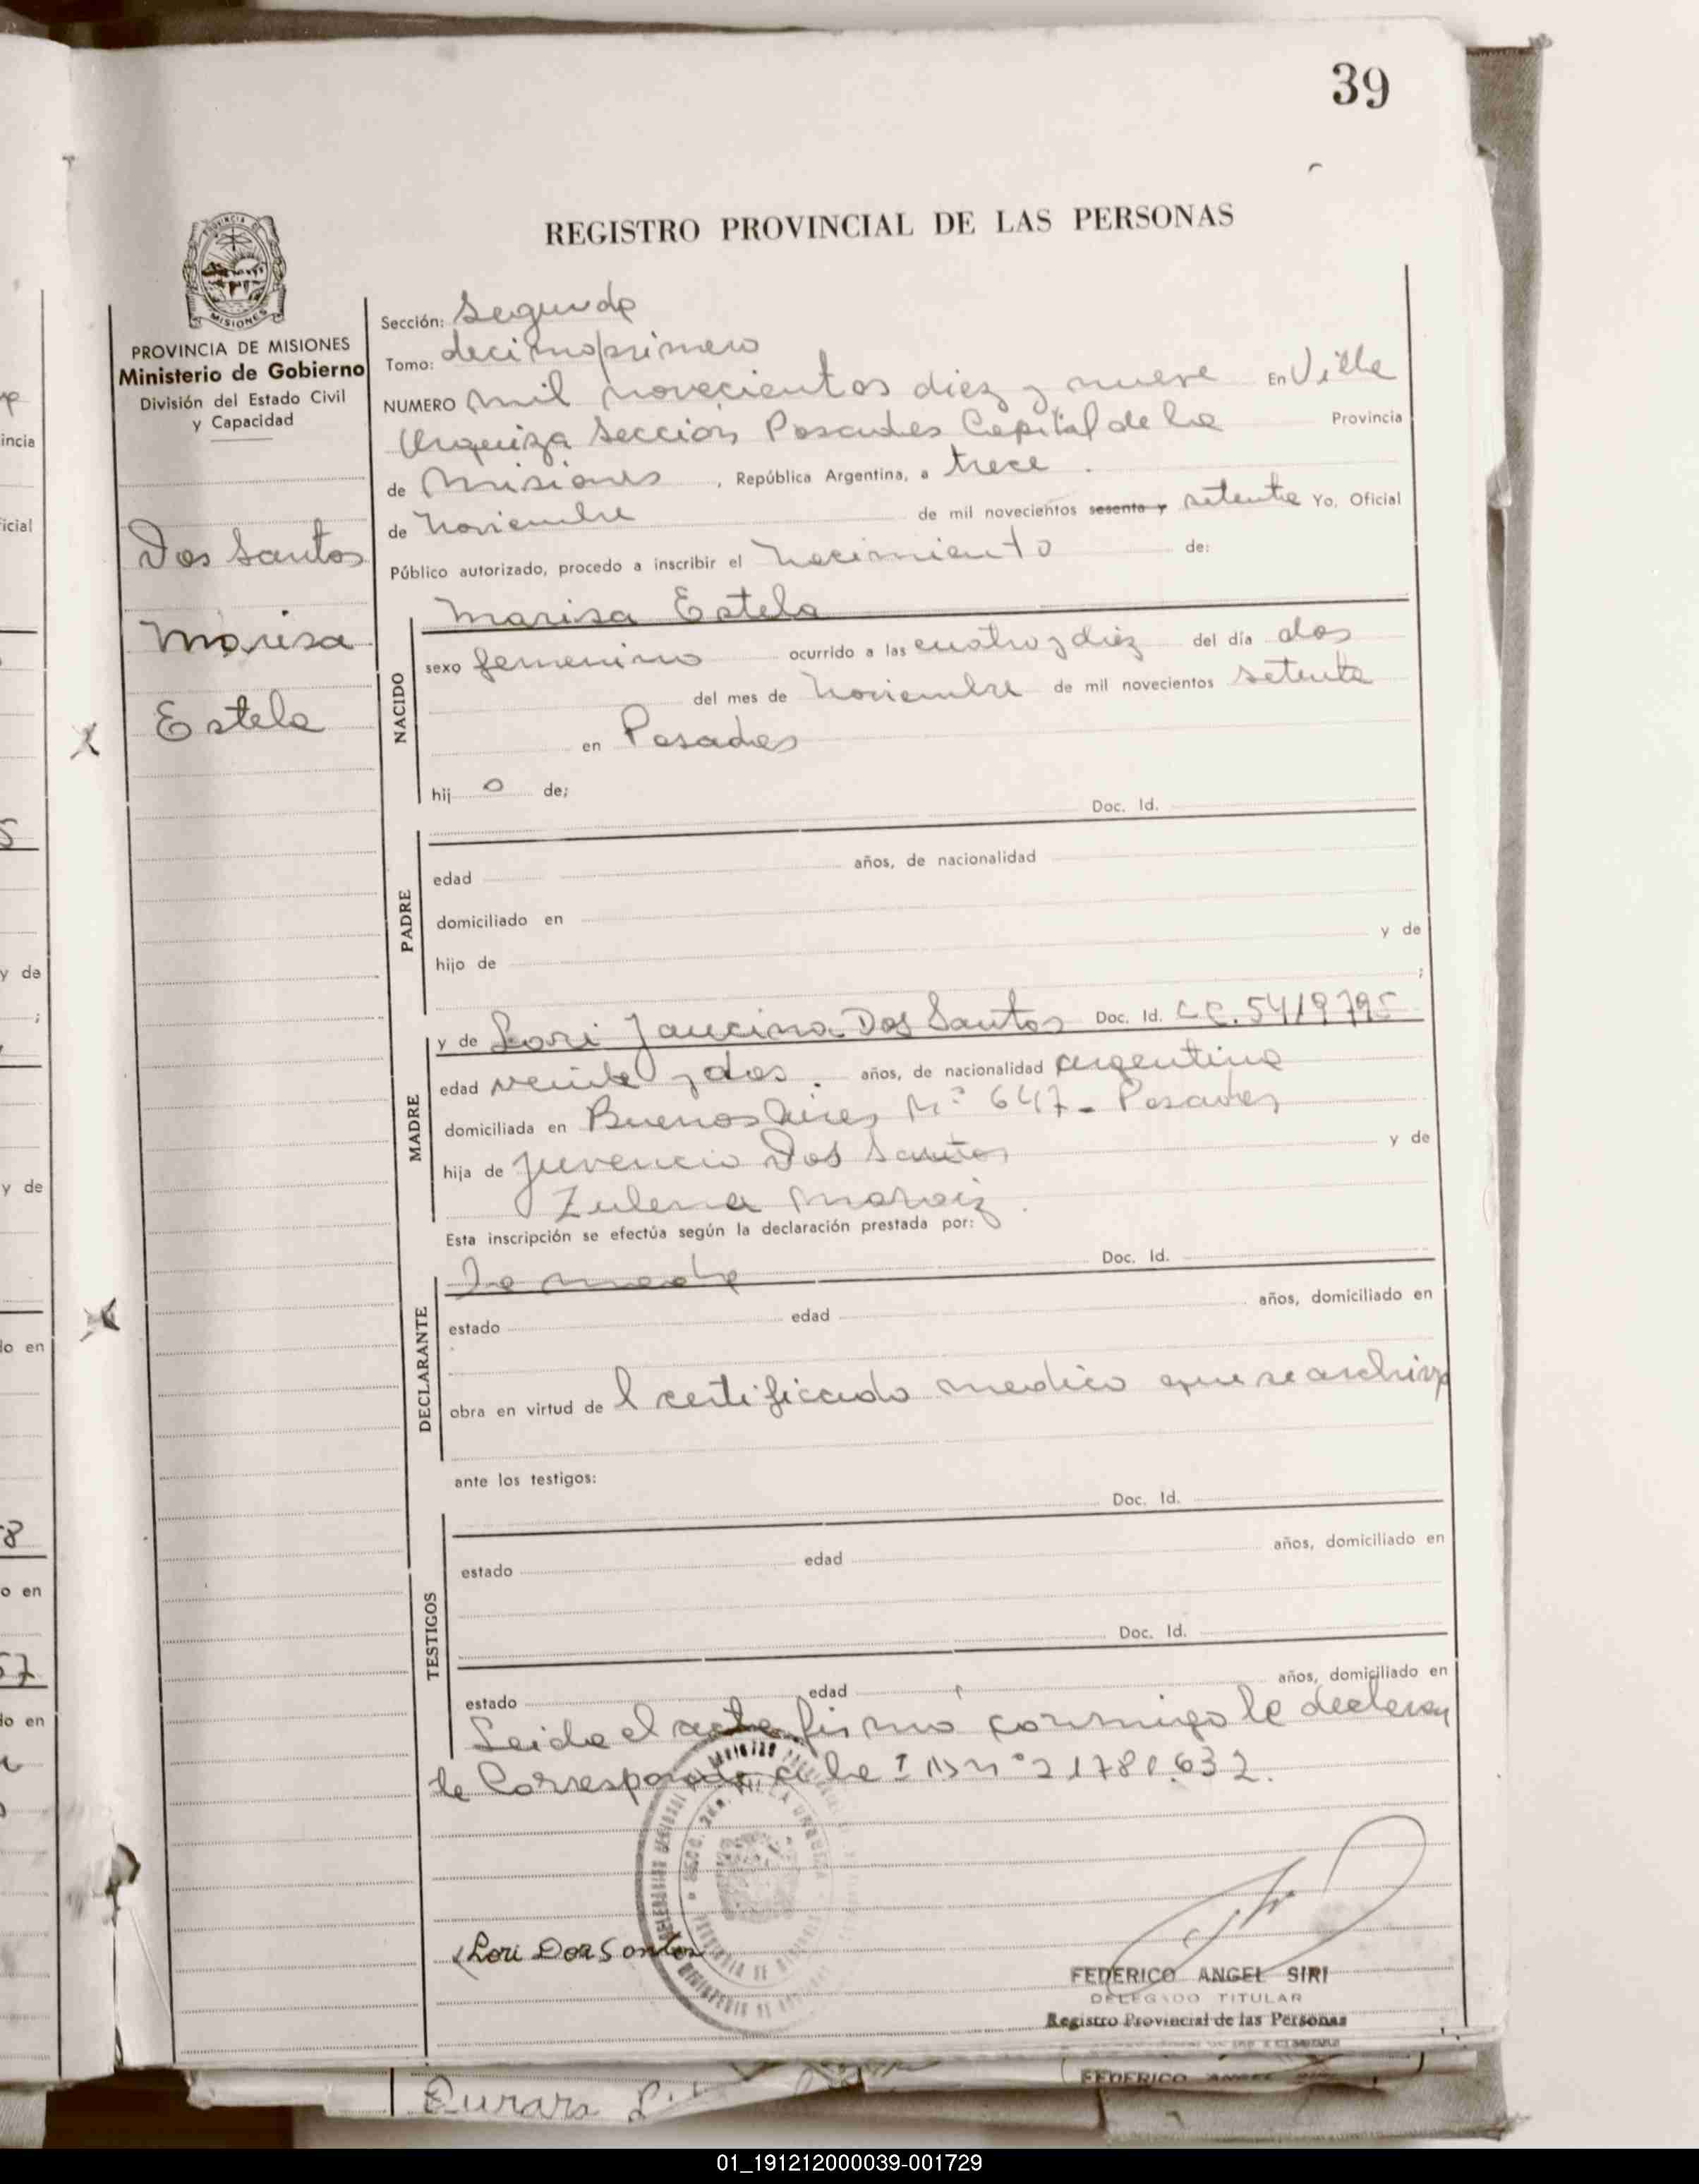 39
REGISTRO PROVINCIAL DE LAS PERSONAS
PROVINCIA DE MISIONES
Ministerio de Gobierno
División del Estado Civil
y Capacidad
Dos Santos
Marisa
Estela
Sección: Segunda
Tomo: decimoprimero
NUMERO mil novecientos diez y nueve En Villa
Urquiza Sección Posadas Capital de la Provincia
de Misiones , República Argentina, a trece
de Noviembre de mil novecientos sesenta y setenta Yo, Oficial
Público autorizado, procedo a inscribir el Nacimiento de:
NACIDO
Marisa Estela
sexo femenino ocurrido a las cuatro y diez del día dos
del mes de Noviembre de mil novecientos setenta
en Posadas
hij a de;
Doc. Id.
PADRE
edad años, de nacionalidad
domiciliado en
hijo de y de
;
MADRE
y de Lori Dos Santos Doc. Id. C.C. 5419795
edad veinte y dos . años, de nacionalidad argentina
domiciliada en Buenos Aires Nº 647 - Posadas
hija de Juvencio Dos Santos y de
Zulema
Esta inscripción se efectúa según la declaración prestada por:
DECLARANTE
La madre Doc. Id.
estado edad años, domiciliado en
obra en virtud de l certificado medico que se archiva
ante los testigos:
Doc. Id.
TESTIGOS
estado edad años, domiciliado en
Doc. Id.
estado edad años, domiciliado en
Leida el acta firmó conmigo la
le Corresponde a la I D nº 21781.632.
Lori Dos Santos
FEDERICO ANGEL SIRI
DELEGADO TITULAR
Registro Provincial de las Personas
01_191212000039-001729